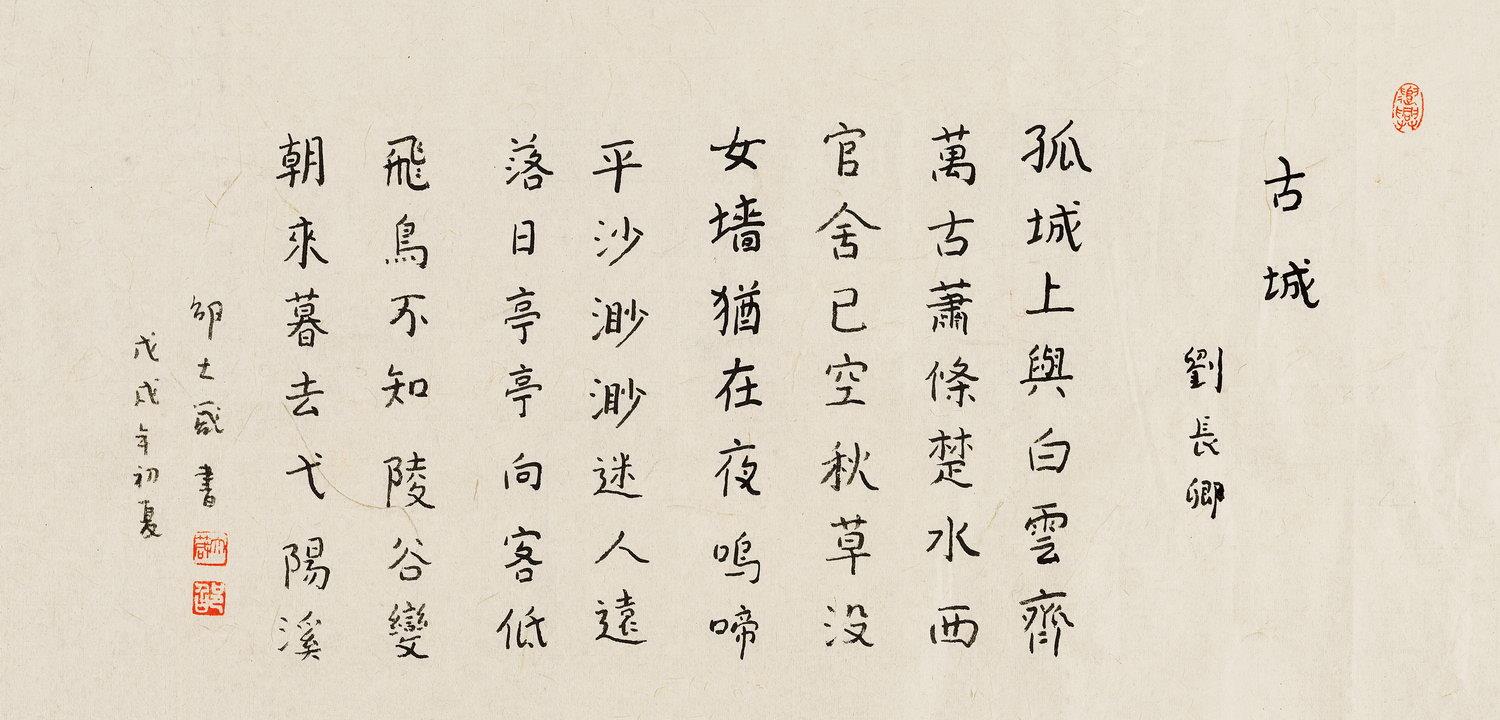 古城
劉長卿
孤城上與白雲齊
萬古蕭條楚水西
官舍已空秋草没
女墙猶在夜嗚啼
平沙渺渺迷人遠
落日亭亭向客低
飛鳥不知陵谷變
朝來暮去弋陽溪
邵大箴書
戊戌年初夏